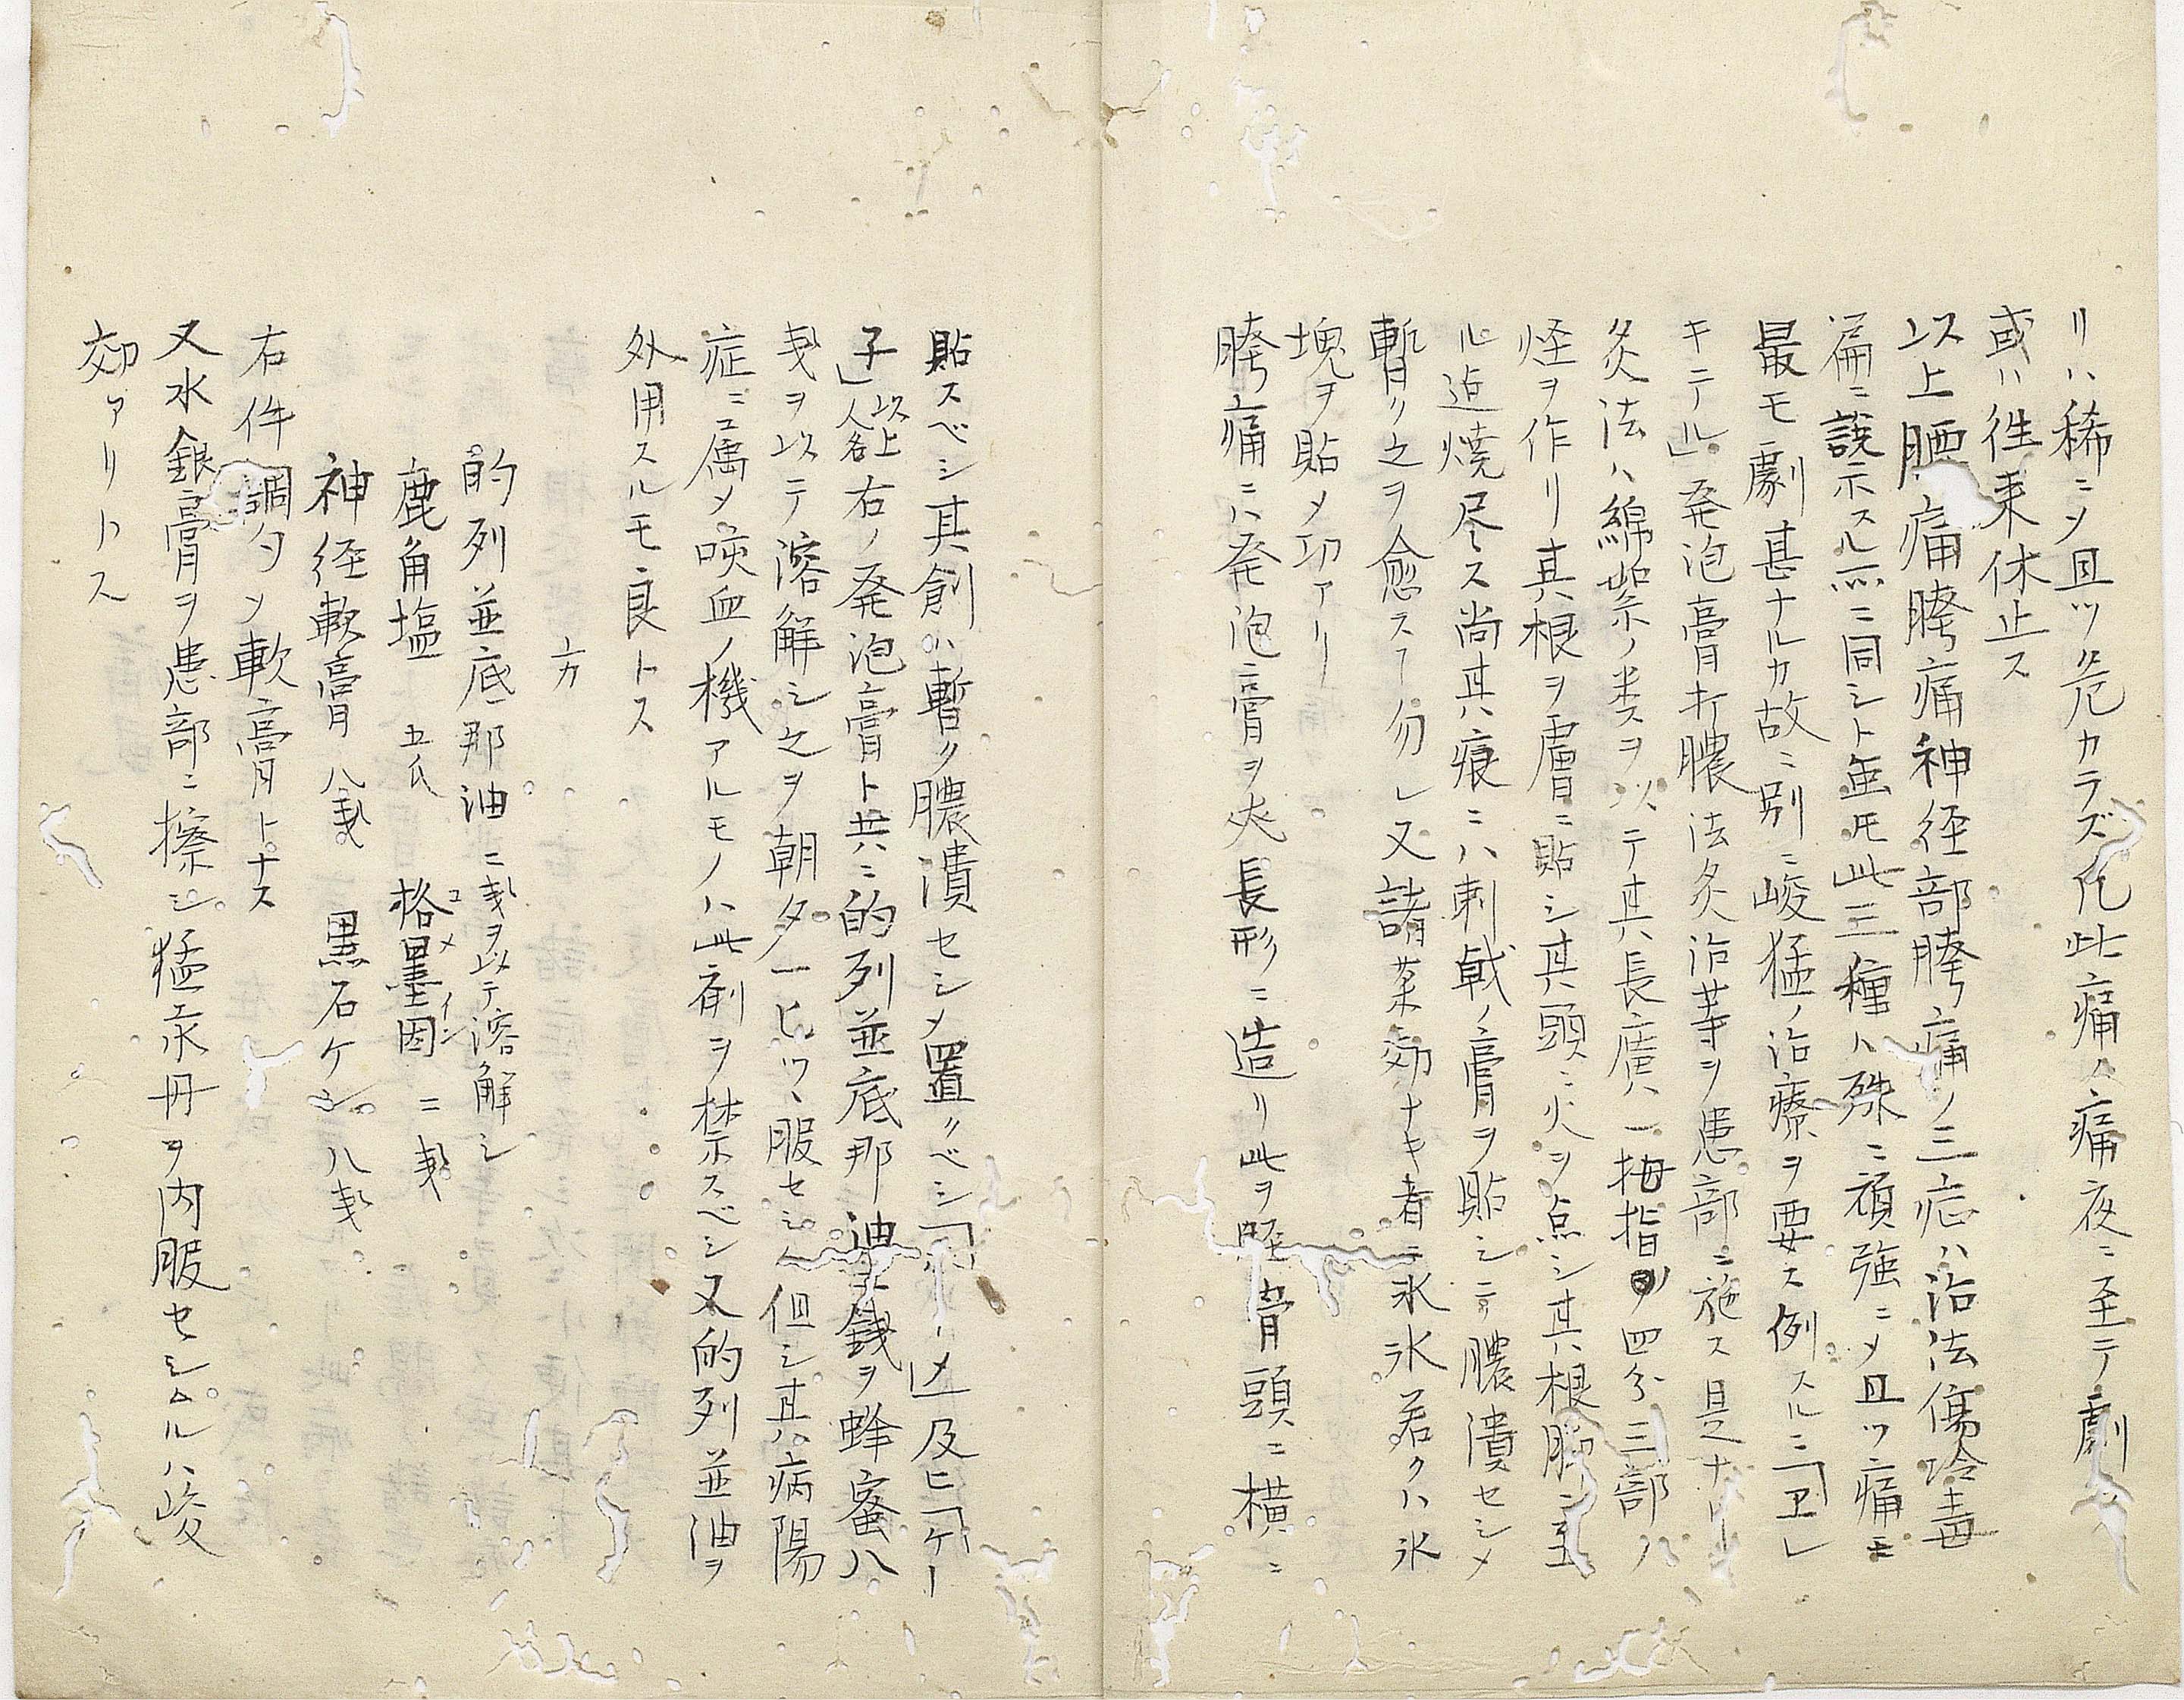 リハ稀ニ〆且ツ危カラズ凡此痛ハ痛夜ニ至テ劇
或ハ徃来休止ス
以上腰痛胯痛神経部胯痛ノ三症ハ治法傷冷毒
扁ニ説示スル所ニ同シト雖㪽此三種ハ殊ニ頑強ニ〆且ツ痛モ
最モ劇甚ナルカ故ニ別ニ峻猛ノ治療ヲ要ス例スルニ「ヱ」
キテル」発泡膏打膿法灸治等ヲ患部ニ施ス是ナリ
灸法ハ綿絮ノ类ヲ以テ其長廣一拇指ノ四分三部ノ
炷ヲ作リ其根ヲ膚ニ貼シ其頭ニ火ヲ点シ其根脚ニ至
ル迠焼尽ス尚其痕ニハ刺戟ノ膏ヲ貼シテ膿潰セシメ
暫ク之ヲ愈ス丆勿レ又諸薬効ナキ者ニ氷氷若クハ氷
塊ヲ貼〆功アリ
胯痛ニハ発泡膏ヲ夾長形ニ造リ此ヲ脛骨頭ニ横ニ
貼スベシ其創ハ暫ク膿潰セシメ置クベシ「 」及ヒ「ケー
子」以上人名右ノ発泡膏ト共ニ的列並底那油 錢ヲ蜂蜜八
戔ヲ以テ溶解シ之ヲ朝夕一匕ツヽ服セシム但シ其病陽
症ニ属〆咲血ノ機アルモノハ此剤ヲ禁スベシ又的列並油ヲ
外用スルモ良トス
方
的列並底那油 二戔ヲ以テ溶解シ
鹿角塩 五氏 格墨因コメイン 二戔
神径軟膏 八戔 黒石ケン 八戔
右件調勻〆軟膏トナス
又水銀膏ヲ患部ニ擦シ猛汞丹ヲ内服セシムルハ峻
効アリトス